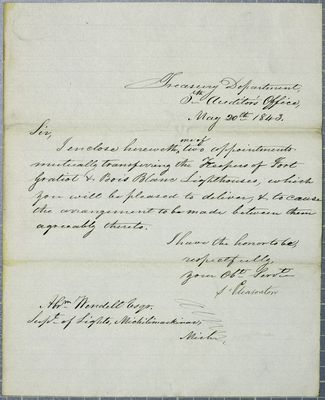 Treasury Department,
5th Auditor's Office,
May 20th 1843.
Sir,
I enclose herewith, two appointments
mutually transferring the Keepers of Fort
Gratiot & Bois Blanc Lighthouses, which
you will be pleased to deliver, & to cause
the arrangement to be made between them
agreeably thereto.
I have the honor to be,
respectfully
your Obt. Servt.
S. Pleasonton
Abm Wendell Esqr.
Supt. of Lights, Michilimackinac,
Michn.